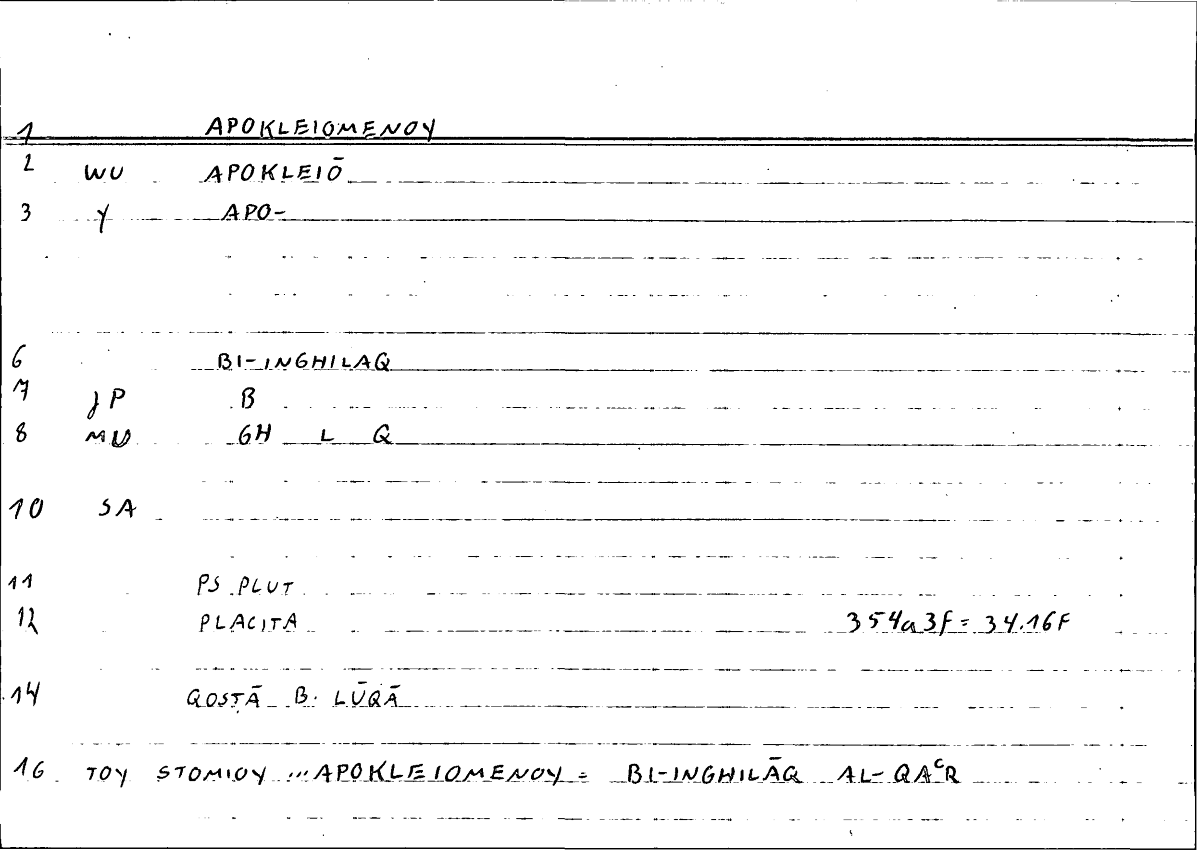 1 APOKLEIOMENOY
2 WU APOKLEIŌ
3 Y APO-
6 BI-INGHILAQ
7 JP B
8 MU GH L Q
10 SA
11 PS.PLUT
12 PLACITA 354a3f = 34.16F
14 QOSṬĀ B. LŪQĀ
16 TOY STOMIOY ... APOKLEIOMENOY = BI-INGHILĀQ AL-QAᶜR